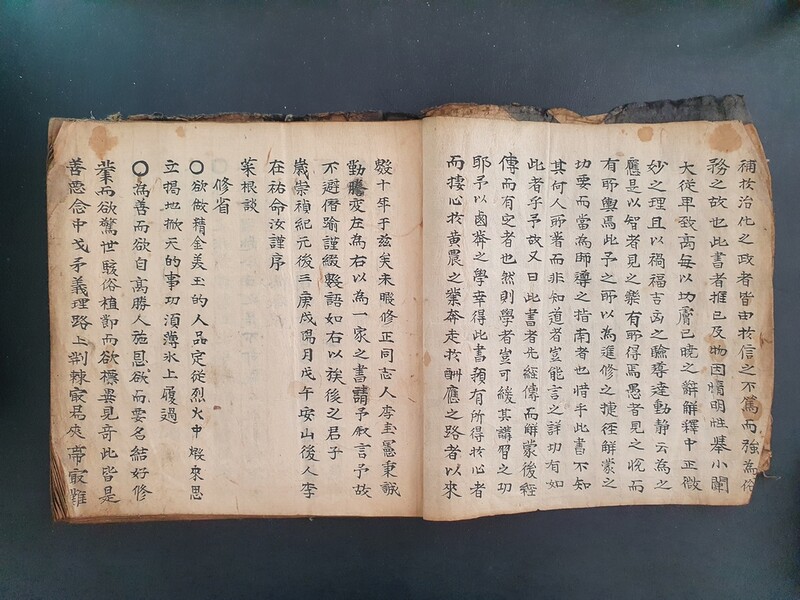 補於治化之政者皆由於信之不篤而強爲俗
務之故也此書者推己及物因情明性舉小闡
大從卑致高每以切膚已曉之辭解釋中正微
妙之理且以禍福吉凶之驗導達動靜云爲之
應是以智者見之樂有所得焉愚者見之悅而
有所輿焉此予之所以爲進修之捷徑解蒙之
功要而當爲師導之指南者也惜乎此書不知
其何人所著而非知道者豈能言之詳切有如
此者乎予故又曰此書者先經傳而解蒙後經
傳而有定者也然則學者豈可緩其講習之功
耶予以鹵莽之學幸得此書頗有所得於心者
而捿心於黃農之業奔走於酬應之路者以來
數十年于玆矣未暇修正同志人李圭憲秉誠
勤謄変左爲右以爲一家之書請予敍言予故
不避僭踰謹綴數語如右以竢後之君子
歲崇禎紀元後三庚戌陽月戊午安山後人李
在祐命汝謹序
菜根談
修省
〇欲做精金美玉的人品定從烈火中煆來思
立揭地掀天的事功須薄氷上履過
〇爲善而欲自高勝人施恩欲而要名結好修
業而欲驚世駭俗植節而欲標異見奇此皆是
善念中戈矛義理路上荊棘冣易夾帶冣難